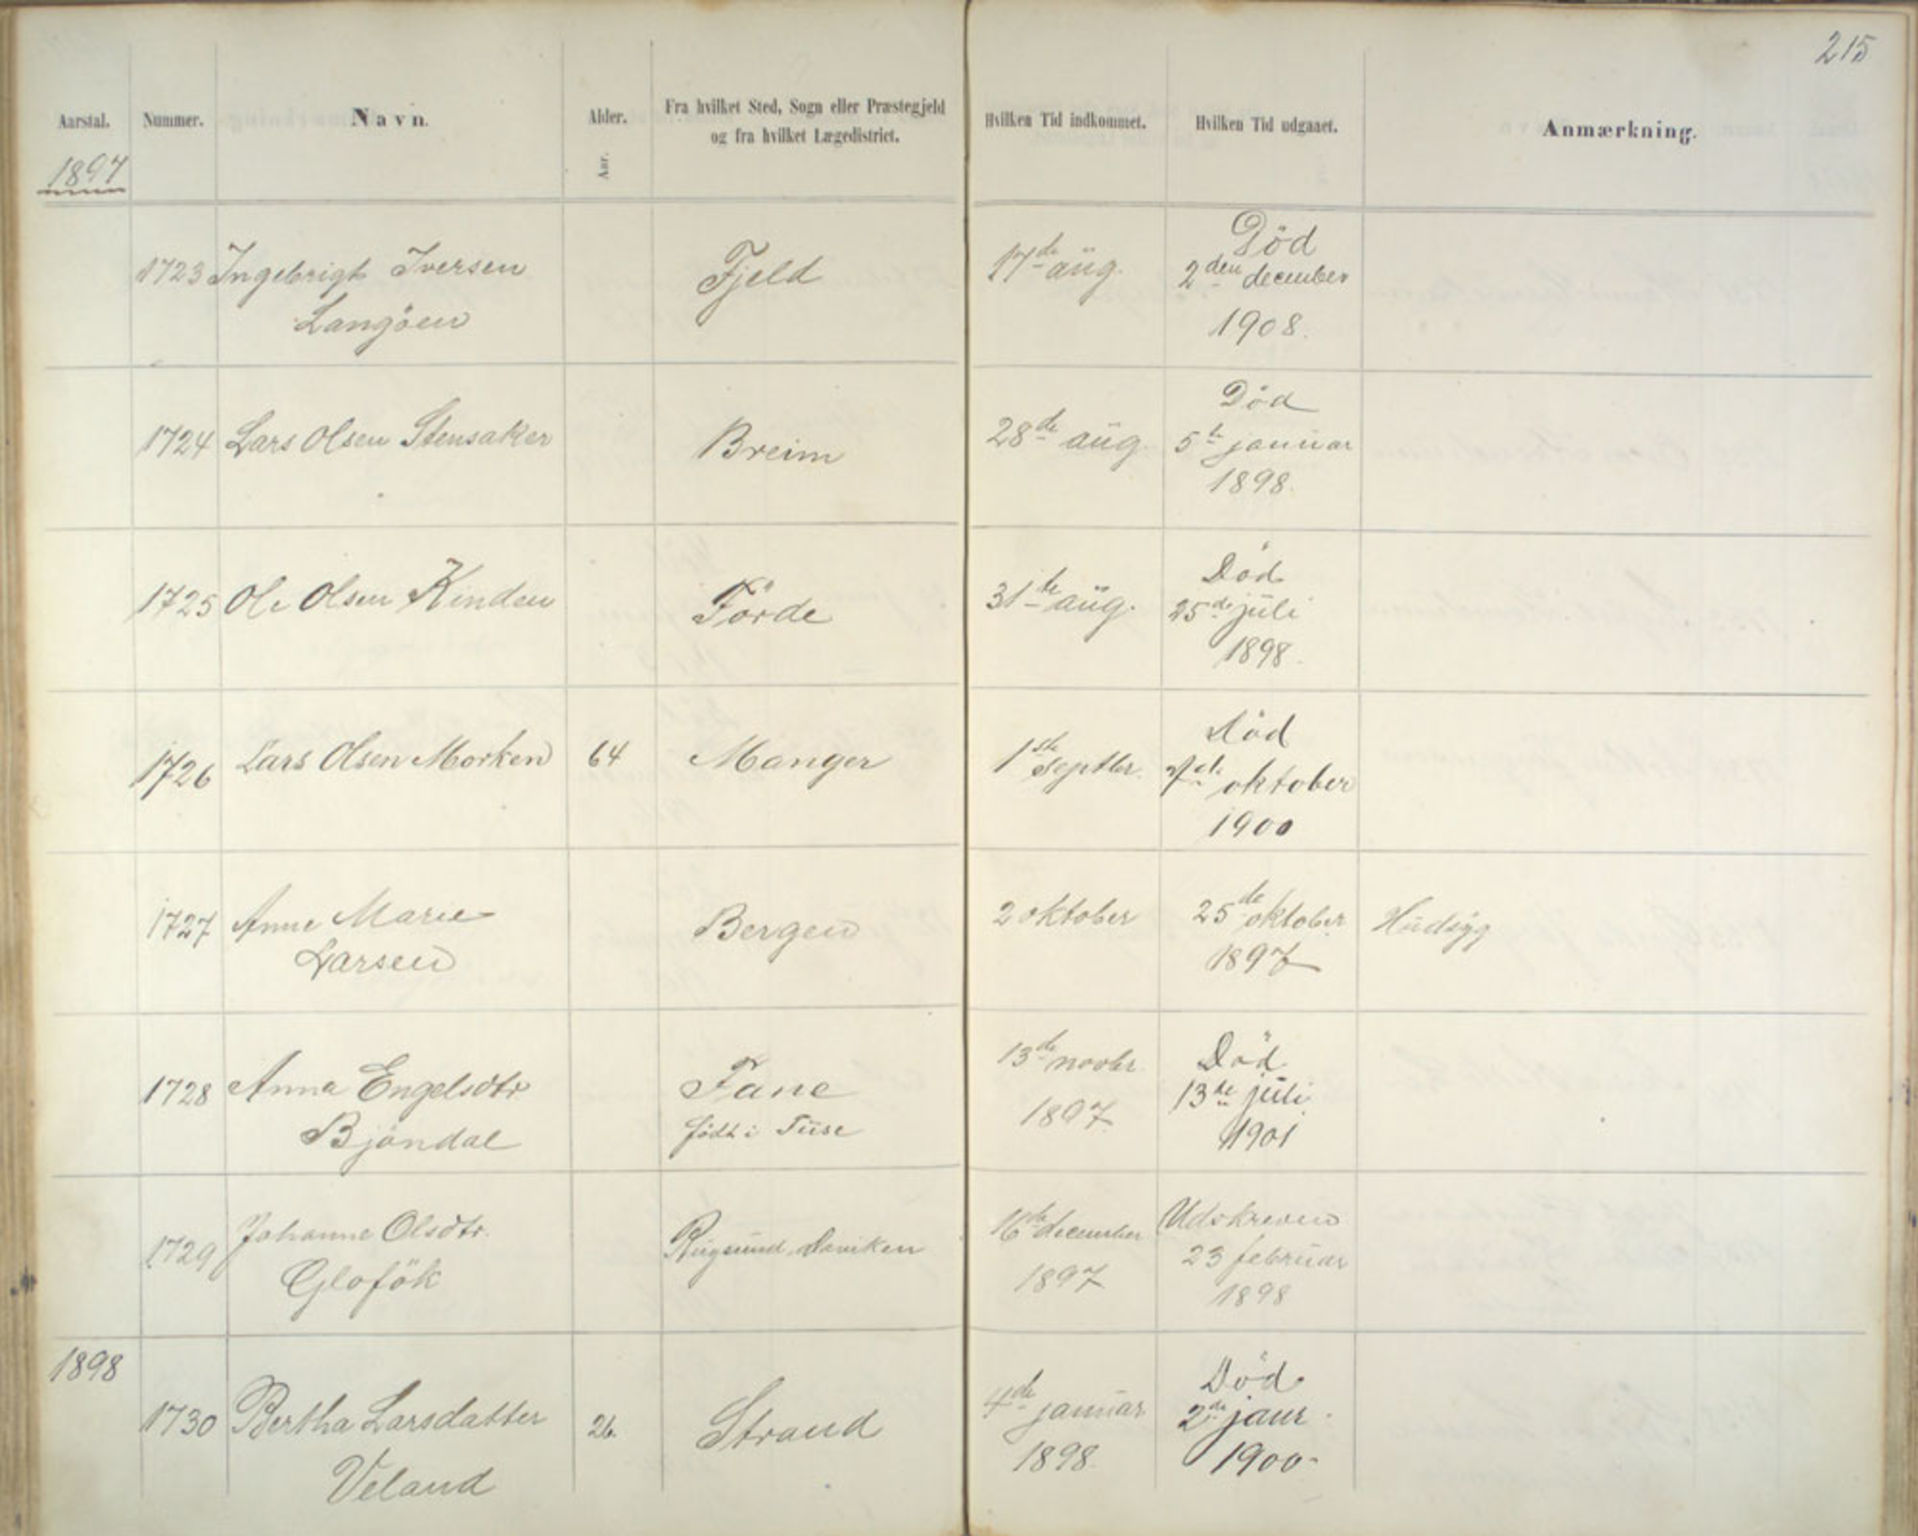 215
Aarstal. Nummer. Navn. Alder. Fra hvilket Sted, Sogn eller Præstegjeld Hvilken Tid indkommet. Hvilken Tid udgaaet. Anmærkning.
Aar. og fra hvilket Lægedistrict.
1897
Død
1723 Ingebrigt Iversen Fjeld 17de aug. 2den december
Langöen 1908.
Död
1724 Lars Olsen Stensaker Breim 28de aug. 5te januar
1898.
Död
1725 Ole Olsen Kinden Förde 31te aug. 25de juli
1898.
Död
1726 Lars Olsen Morken 64 Manger 1ste Septbr. oktober
1900
1727 Anne Marie Bergen 2 oktober 25de oktober Hudsyg
Larsen 1897
Död
1728 Anna Engelsdtr Fane 13de novbr. 13de juli
Bjöndal födt i 1897 1901
1729 Johanne Olsdtr. Rugsund Daviken 16de december Udskreven
Glofök 1897 23 februar
1898
1898
Död
1730 Bertha Larsdatter 26 Strand 4de januar 2de janr.
Veland 1898. 1900-